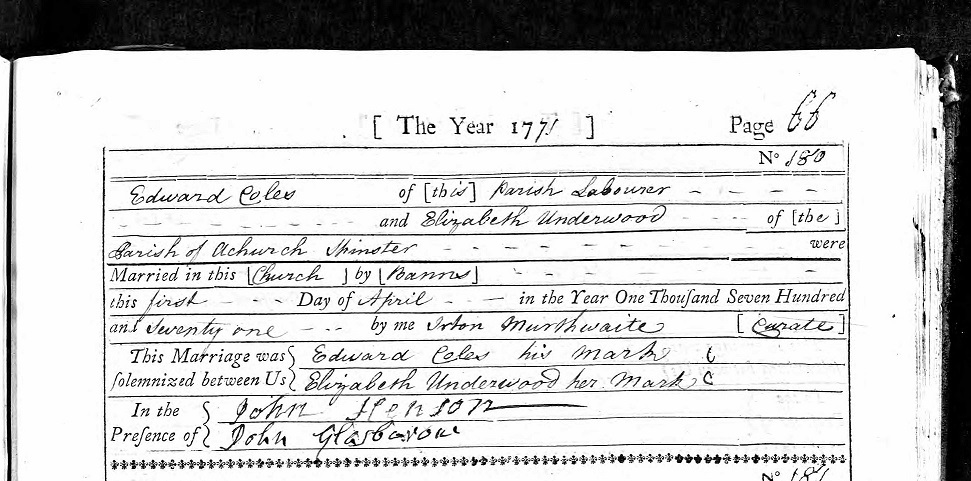 [ The Year 1771 ] Page 66
No 180
Edward Coles of [this] Parish Labourer
and Elizabeth Underwood of [the]
Parish of Achurch Spinster were
Married in this [Church] by [Banns]
this first Day of April in the Year One Thouſand Seven Hundred
and Seventy one by me Irton Murthwaite [Curate]
This Marriage was Edward Coles his Mark
ſolemnized between Us Elizabeth Underwood her Mark
In the John Henson
Preſence of John Glasbarow
No 181